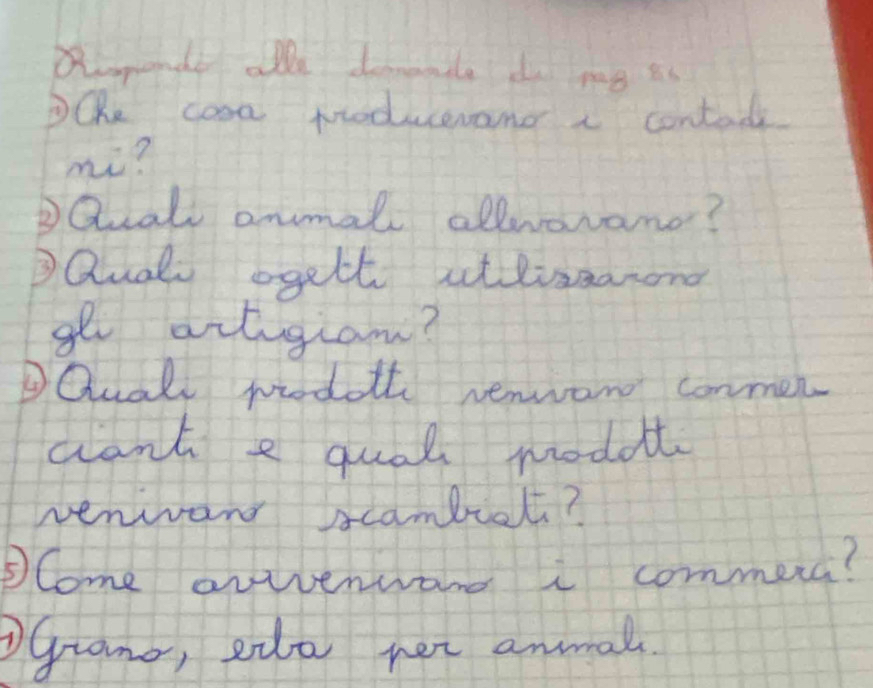 Rispondi alle domande di pag 86
1) Che cosa producevano i contadi
ni?
2) Quali animali allevavano?
3) Quali ogetti utilizzarono
gli artigiani?
4) Quali prodotti venivano conmer
cianti e quali prodotti
venivano scambiati?
5) Come avvenivano i commerci?
1) Grano, erba per animali.